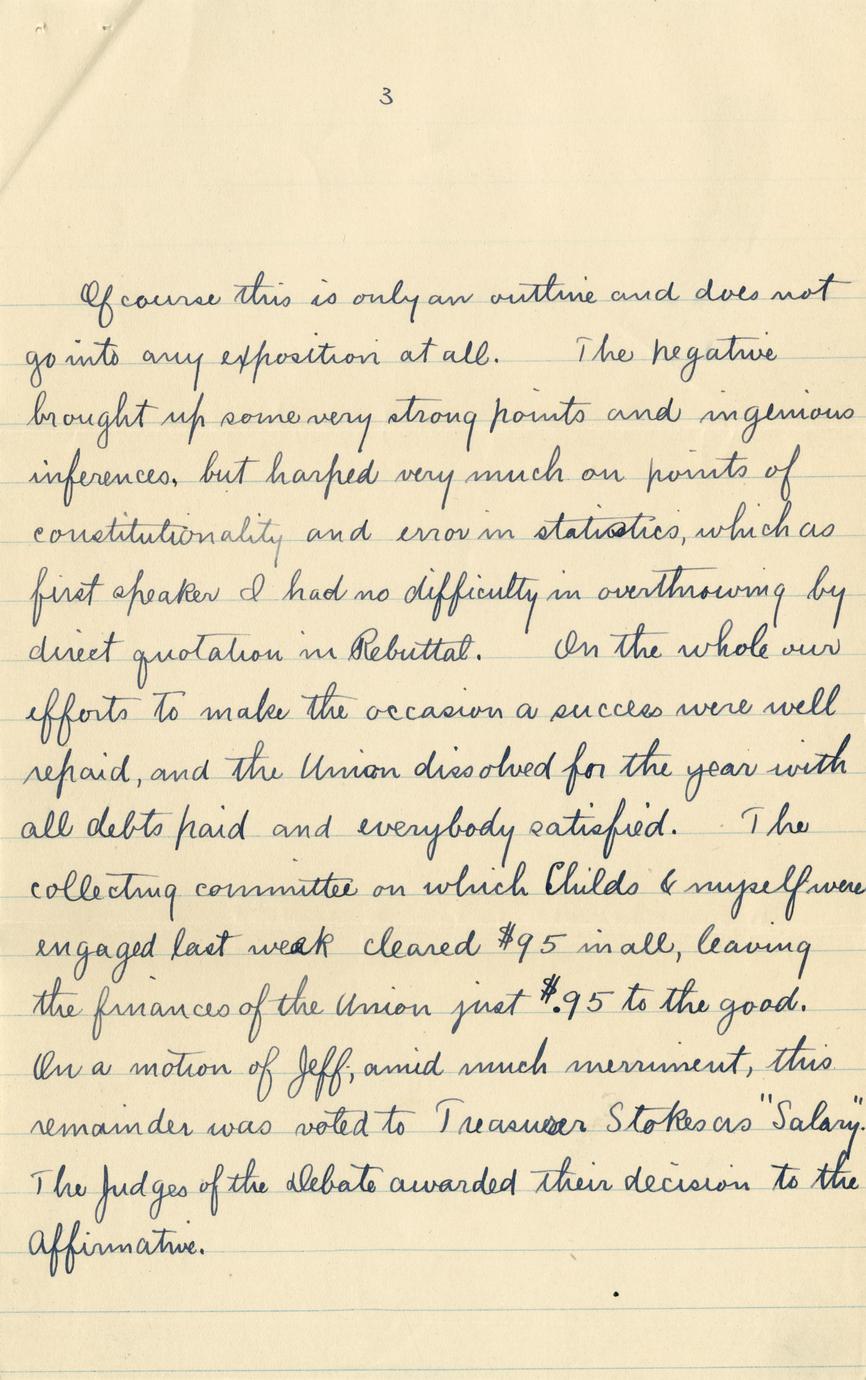 3
Of course this is only an outline and does not
go into any exposition at all. The negative
brought up some very strong points and ingenious
inferences, but harped very much on points of
constitutionality and error in statistics, which as
first speaker I had no difficulty in overthrowing by
direct quotation in Rebuttal. On the whole our
efforts to make the occasion a success were well
repaid, and the Union dissolved for the year with
all debts paid and everybody satisfied. The
collecting committee on which Childs & myself were
engaged last week cleared $95 in all, leaving
the finances of the Union just $.95 to the good.
On a motion of Jeff, amid much merriment, this
remainder was voted to Treasurer Stokes as "Salary".
The Judges of the Debate awarded their decision to the
Affirmative.